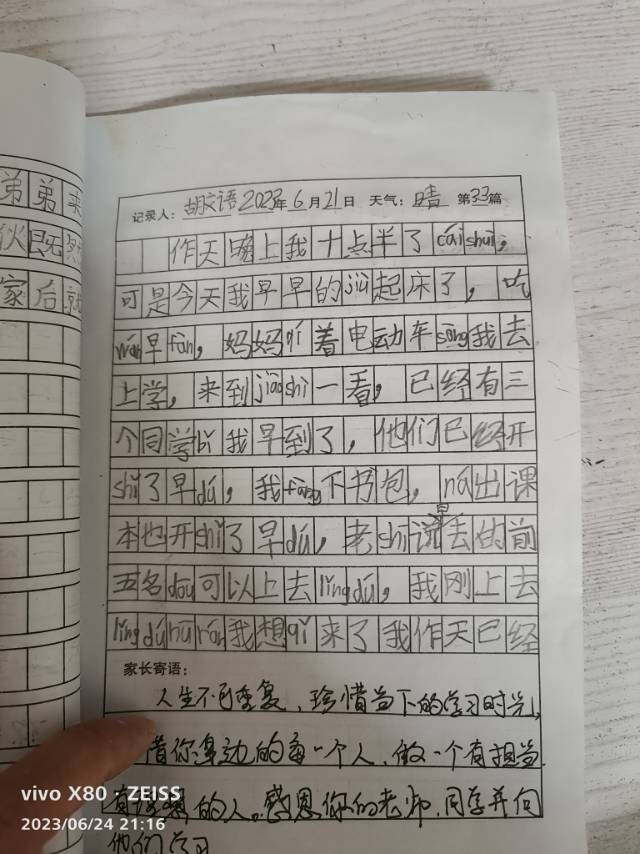 弟弟来
伙既然
家后就
记录人：胡文语 2023年6月21日 天气：晴 第33篇
作天晚上我十点半了cái shuì，
可是今天我早早的jiù起床了，吃
wán早fàn，妈妈qí着电动车sòng我去
上学，来到jiào shì一看，已经有三
个同学bǐ我早到了，他们已经开
shǐ了早dú，我fàng下书包，ná出课
本也开shǐ了早dú，老shī说早去的前
五名dōu可以上去lǐng dú，我刚上去
lǐng dú tū rán我想qǐ来了我作天已经
家长寄语：
人生不可重复，珍惜当下的学习时光，
惜你身边的每一个人，做一个有担当
有 的人。感恩你的老师，同学并向
他们学习
vivo X80 · ZEISS
2023/06/24 21:16